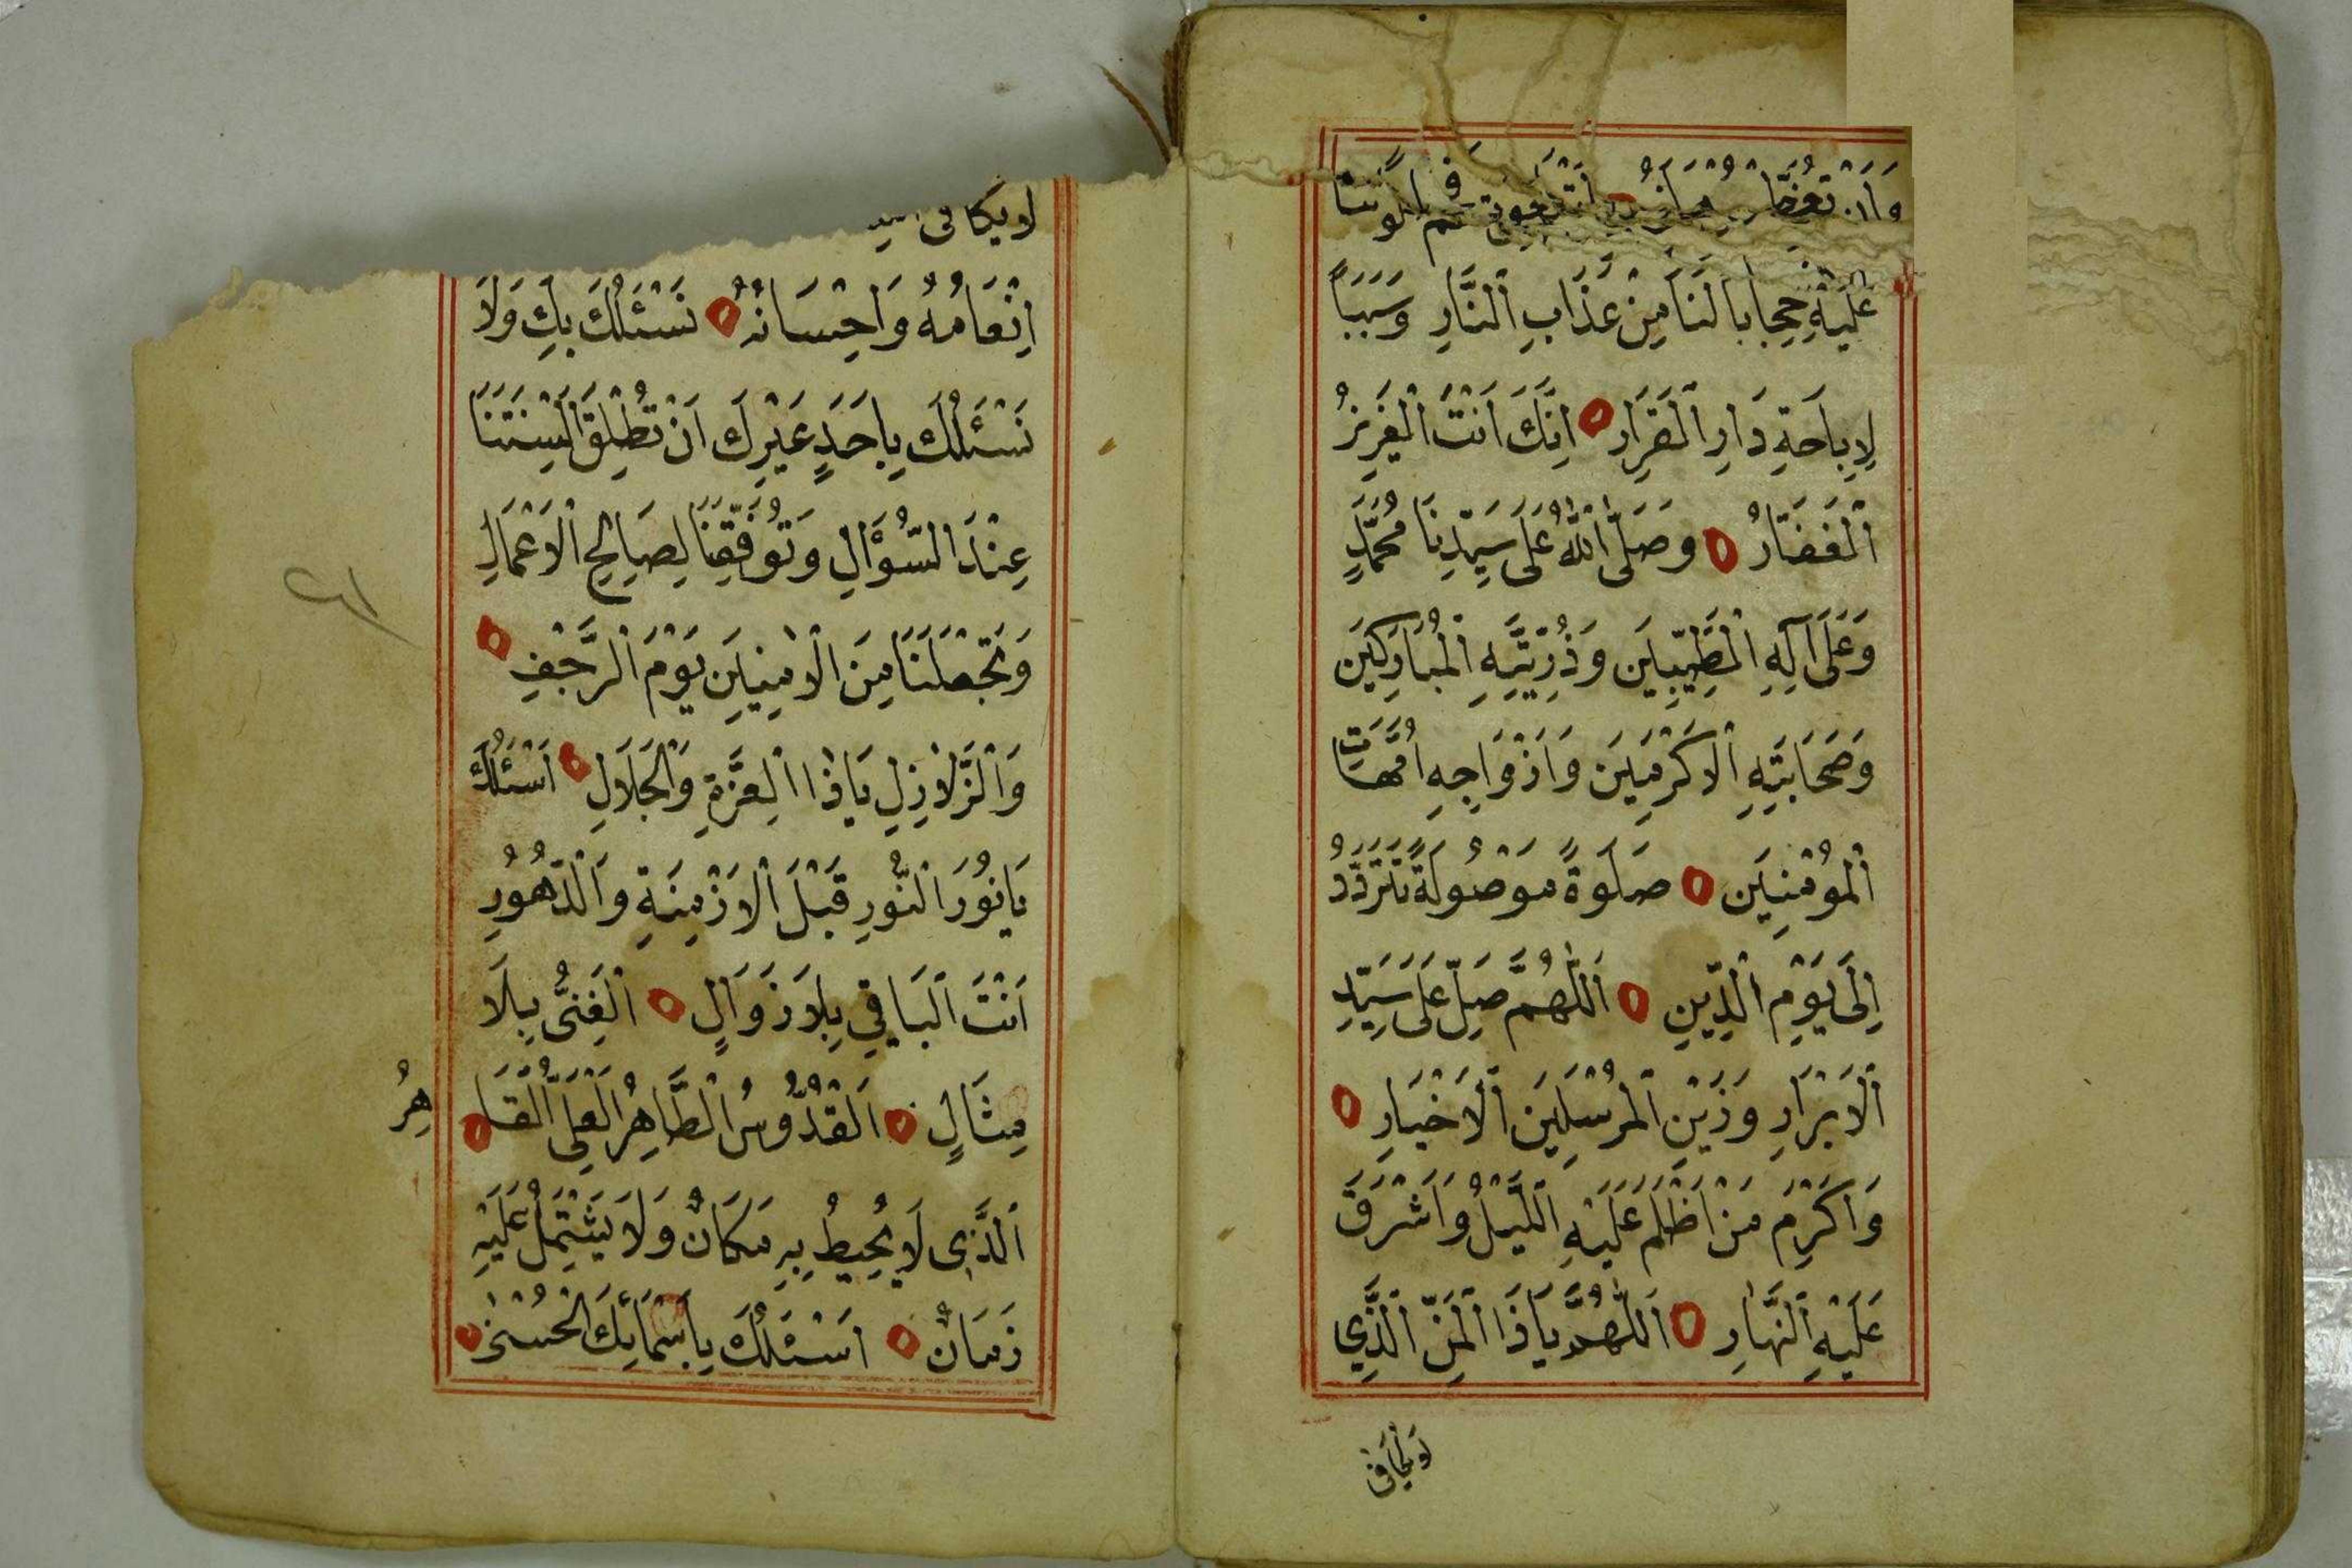 عَلَيْهِ حِجَابًا لَنَا مِنْ عَذَابِ اَلنَّارِ وَسَبَبًا
لِاِبَاحَةِ دَارِ الْقَرَارِ اِنَّكَ اَنْتَ الْعَزِيزُ
اَلْغَفَّارُ وَصَلَّى اللّٰهُ عَلَى سَيِّدِنَا مُحَمَّدٍ
وَعَلَى آلِهِ الطَّيِّبِينَ وَذُرِّيَّتِهِ الْمُبَارَكِينَ
وَصَحَابَتِهِ الْاَكْرَمِينَ وَاَزْوَاجِهِ اُمَّهَاتِ
اَلْمُؤْمِنِينَ صَلَوةً مَوْصُولَةً تَتَرَدَّدُ
اِلَى يَوْمِ الدِّينِ اَللّٰهُمَّ صَلِّ عَلَى سَيِّدِ
اَلْاَبْرَارِ وَزَيْنِ الْمُرْسَلِينَ اَلْاَخْيَارِ
وَاَكْرَمِ مَنْ اَظْلَمَ عَلَيْهِ اللَّيْلُ وَاَشْرَقَ
عَلَيْهِ النَّهَارِ اَللّٰهُمَّ يَا ذَا الْمَنِّ الَّذِي
لَا يُكَافَى
لا يكافى
اِنْعَامُهُ وَاِحْسَانُهُ نَسْئَلُكَ بِكَ وَلَا
نَسْئَلُكَ بِاَحَدٍ غَيْرِكَ اَنْ تُطْلِقَ اَلْسِنَتَنَا
عِنْدَ السُّؤَالِ وَتُوَفِّقَنَا لِصَالِحِ الْاَعْمَالِ
وَتَجْعَلَنَا مِنَ الْاٰمِنِينَ يَوْمَ الرَّجْفِ
وَالزَّلَازِلِ يَا ذَا الْعِزَّةِ وَالْجَلَالِ اَسْئَلُكَ
يَا نُورَ النُّورِ قَبْلَ الْاَزْمِنَةِ وَالدُّهُورِ
اَنْتَ الْبَاقِي بِلَا زَوَالٍ اَلْغَنِىُّ بِلَا
مِثَالٍ اَلْقُدُّوسُ الطَّاهِرُ الْعَلِىُّ الْقَا
هِرُ
اَلَّذِى لَا يُحِيطُ بِهِ مَكَانٌ وَلَا يَشْتَمِلُ عَلَيْهِ
زَمَانٌ اَسْئَلُكَ بِاَسْمَائِكَ الْحُسْنٰى